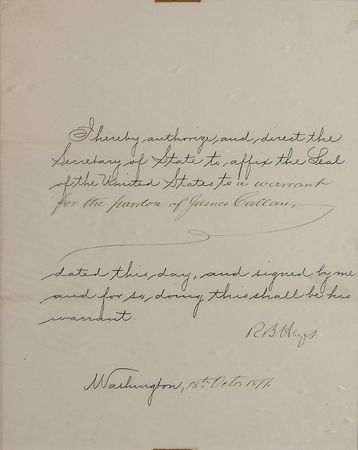 I hereby authorize, and, direct the
Secretary of State to, affix the Seal
of the United States to a warrant
for the pardon of James Callan,
dated this, day, and signed by me
and for so, doing this shall be his
warrant.
R B Hayes
Washington, 18th Octor 1877.